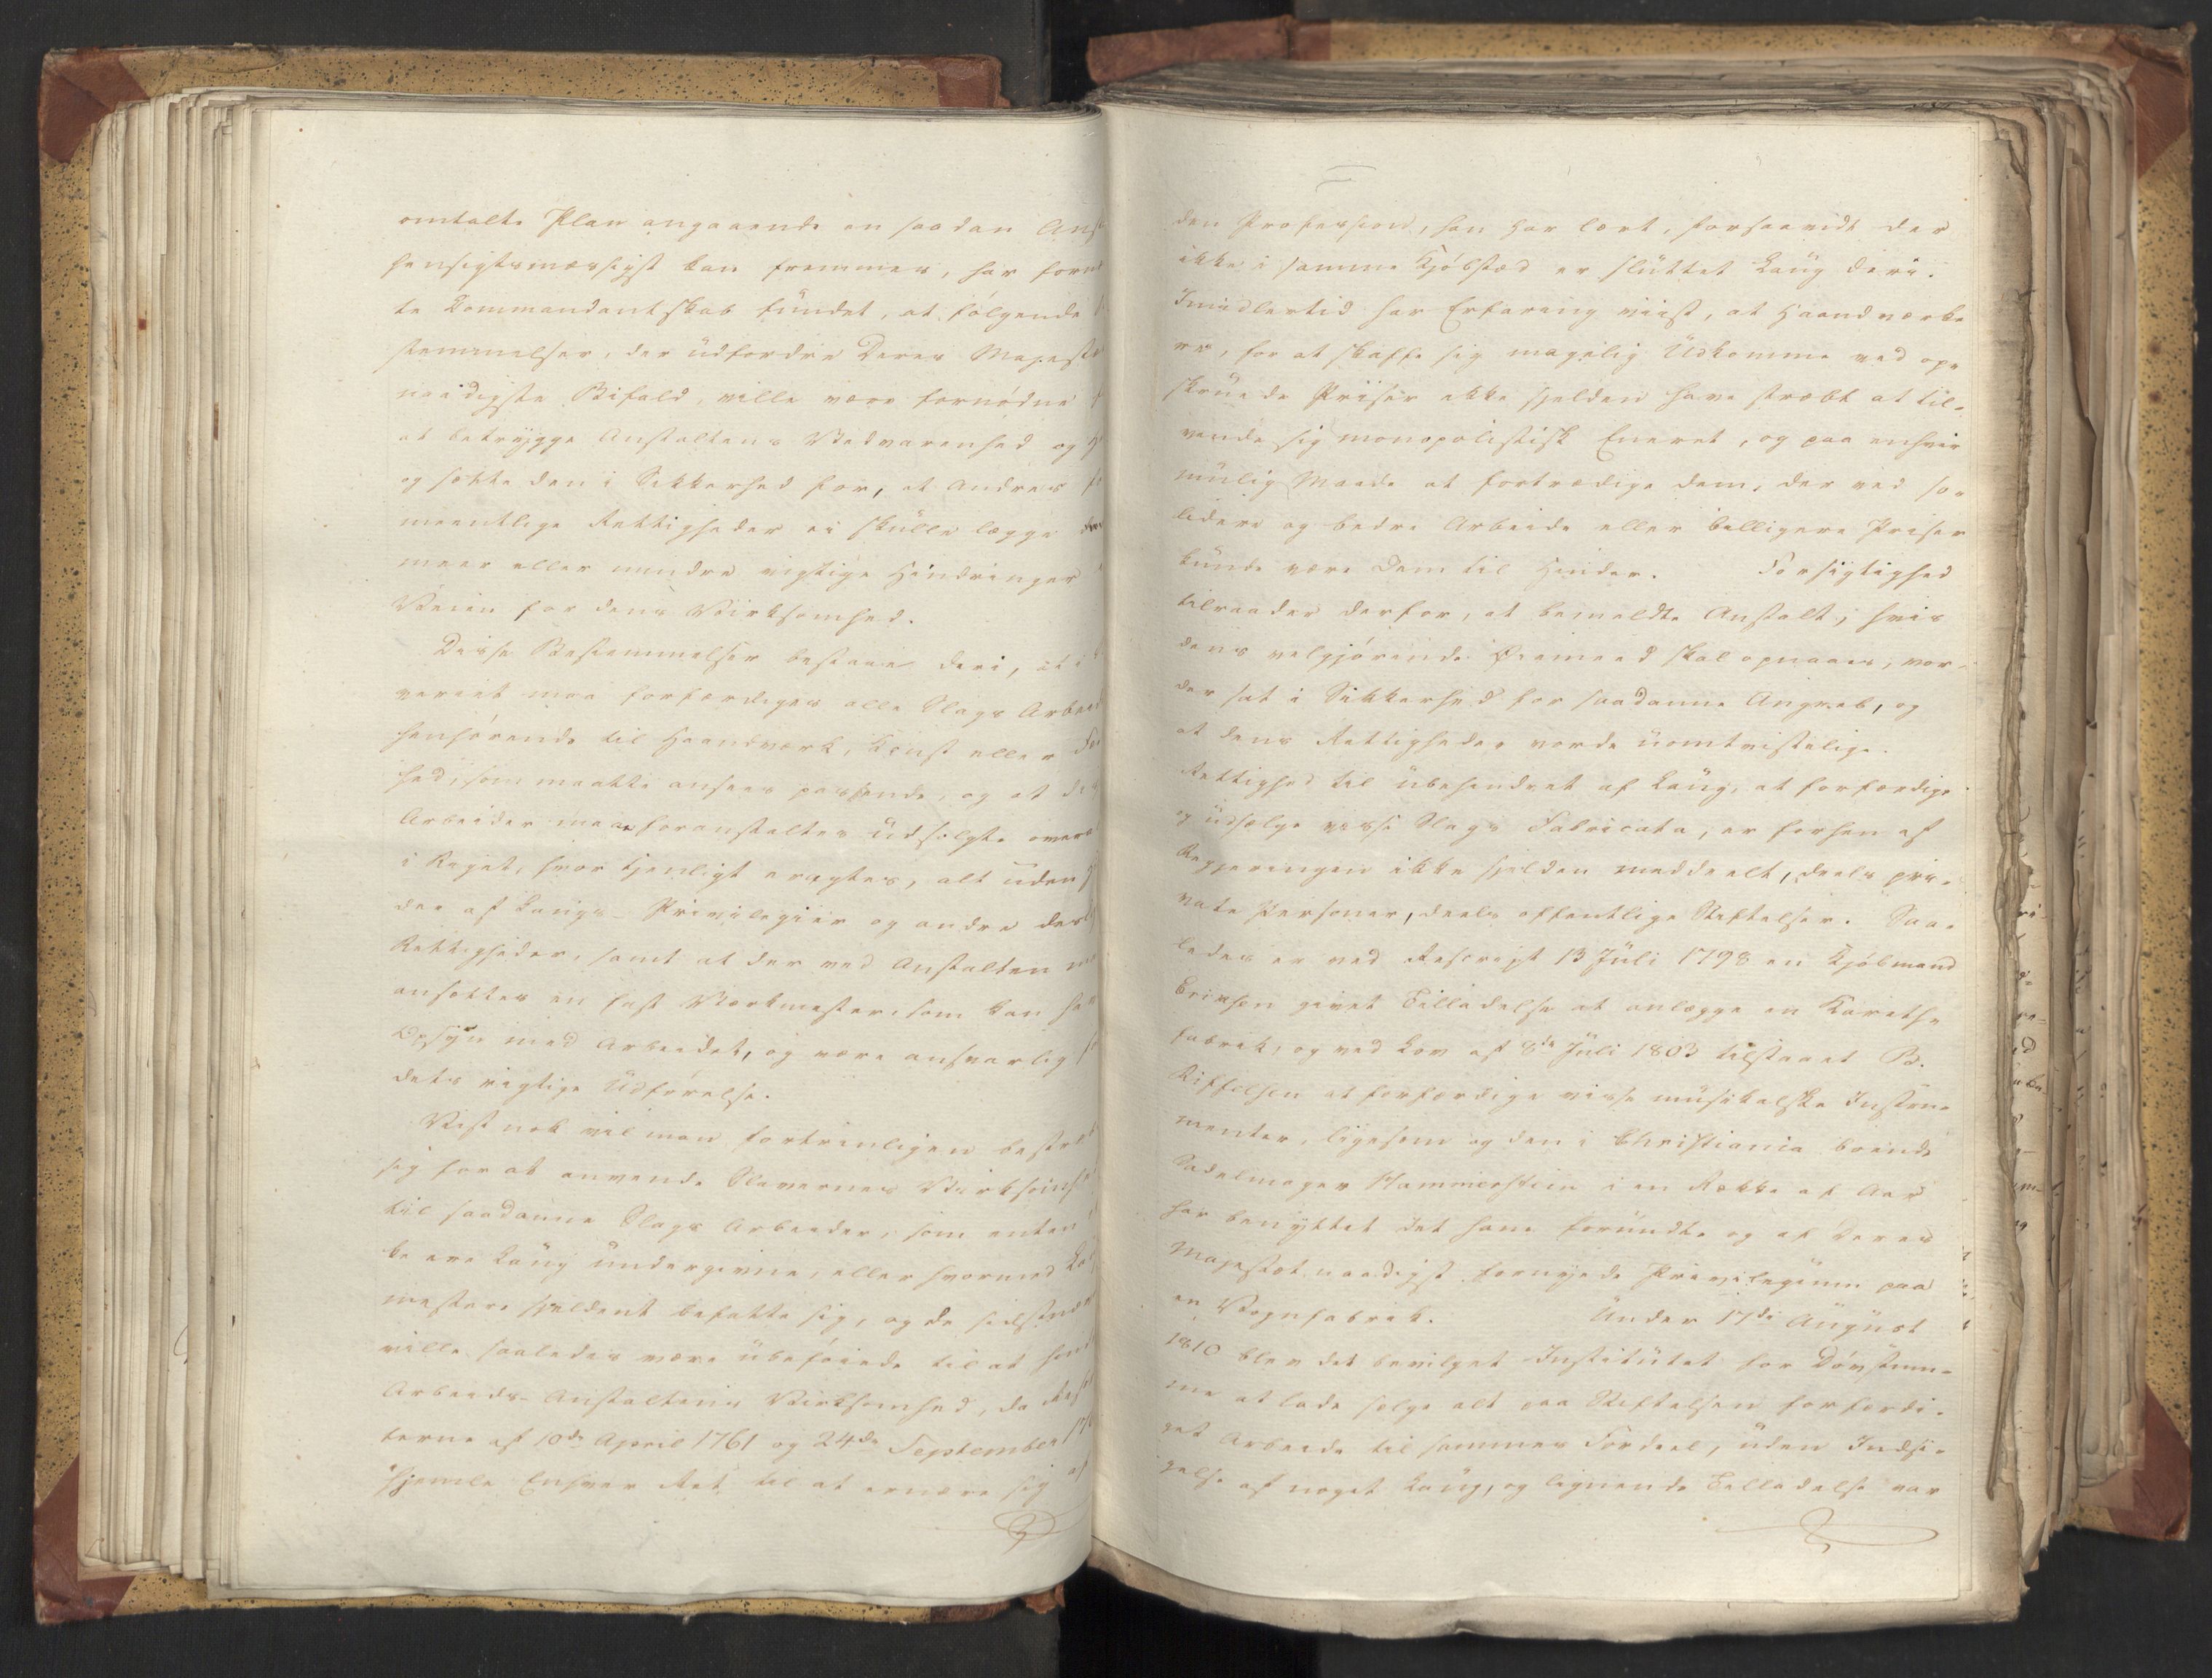 omtalte Plan angaaende en saadan Anst
hensigtsmæssigst kan fremmes, har form
te Commandantskab fundet, at følgende
stemmelser, der udfordre Deres Majestæ
naadigste Bifald, ville være fornødne
at betrygge Anstaltens Vedvarenhed og
og sætte den i Sikkerhed for, at Andres
meentlige Rettigheder ei skulle lægge
meer eller mindre vigtige Hindringer
Veien for dens Virksomhed.
Disse Bestemmelser bestaae deri, at i
veriet maa forfærdiges alle Slags Arbeid
henhørende til Haandværk, Kunst eller
hed, som maatte ansees passende, og at
Arbeider maae foranstaltes udsolgte over
i Riget, hvor tjenligt eragtes, alt uden
der af Laugs-Privilegier og andre desl
Rettigheder, samt at der ved Anstalten
ansættes en fast Værkmester, som kan
Opsyn med Arbeidet, og være ansvarlig
dets rigtige Udførelse.
Vist nok vil man fortrinligen bestræ
sig for at anvende Slavernes Virksomhe
til saadanne Slags Arbeider, som enten
ke ere Laug undergivne, eller hvormed
mestere sjeldent befatte sig, og de sidstnæv
ville saaledes være ubeføiede til at
Arbeids-Anstaltens Virksomhed, da
terne af 10de April 1761 og 24de September
hjemle Enhver Ret til at ernære sig af
den Profession, han har lært, forsaavidt der
ikke i samme Kjøbstæd er sluttet Laug deri.
Imidlertid har Erfaring viist, at Haandværke
re, for at skaffe sig magelig Udkomme ved op-
skruede Priser ikke sjelden have stræbt at til-
vende sig monopolistisk Eneret, og paa enhver
mulig Maade at fortrædige dem, der ved so-
lidere og bedre Arbeide eller billigere Priser
kunde være Dem til Hinder. Forsigtighed
tilraader derfor, at bemeldte Anstalt, hvis
dens velgjørende Øiemeed skal opnaaes, vor-
der sat i Sikkerhed for saadanne Angreb, og
at dens Rettigheder vorde uomtvistelige.
Rettighed til ubehindret af Laug, at forfærdige
og udsælge visse Slags Fabricata, er forhen af
Regjeringen ikke sjelden meddeelt, deels pri-
vate Personer, deels offentlige Stiftelser. Saa-
ledes er ved Rescript 13 Juli 1798 en Kjøbmand
Erichsen givet Tilladelse at anlægge en Kareth-
fabrik, og ved Lov af 8de Juli 1803 tilstaaet B.
Riffelsen at forfærdige visse musikalske Instru-
menter, ligesom og den i Christiania boende
Sadelmager Hammerstein i en Række af Aar
har benyttet det ham forundte og af Deres
Majestæt naadigst fornyede Privilegium paa
en Vognfabrik. Under 17de August
1810 blev det bevilget Institutet for Døvstum-
me at lade sælge alt paa Stiftelsen forfærdi-
get Arbeide til sammes Fordeel, uden Indsi-
gelse af noget Laug, og lignende Tilladelse var